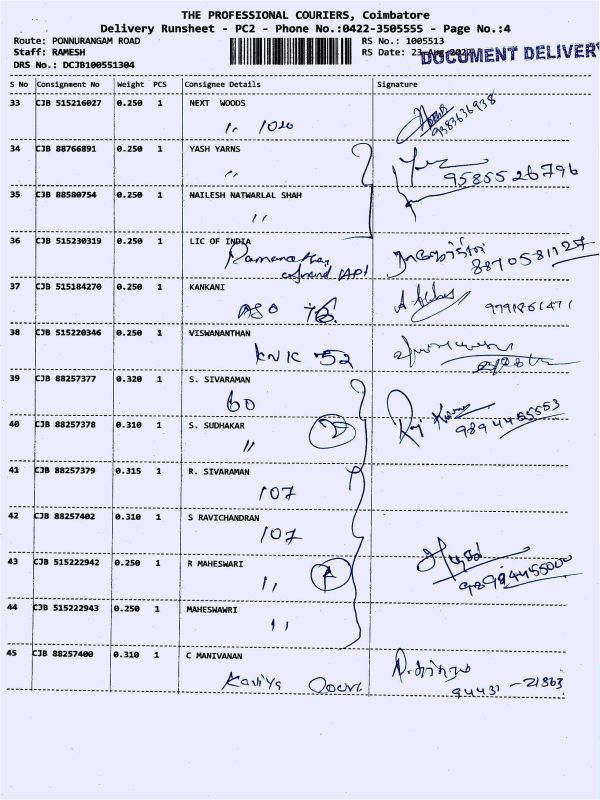 THE PROFESSIONAL COURIERS, Coimbatore
Delivery Runsheet - PC2 - Phone No.:0422-3505555 - Page No.:4
Route: PONNURANGAM ROAD RS No.: 1005513
Staff: RAMESH RS Date: 23-Aug
DOCUMENT DELIVERY
DRS No.: DCJB100551304
S No Consignment No Weight PCS Consignee Details Signature
33 CJB 515216027 0.250 1 NEXT WOODS
1020
9383636938
34 CJB 88766891 0.250 1 YASH YARNS
9585526796
35 CJB 88580754 0.250 1 NAILESH NATWARLAL SHAH
36 CJB 515230319 0.250 1 LIC OF INDIA
8870581127
37 CJB 515184270 0.250 1 KANKANI
9791861471
38 CJB 515220346 0.250 1 VISWANANTHAN
52
39 CJB 88257377 0.320 1 S. SIVARAMAN
60
40 CJB 88257378 0.310 1 S. SUDHAKAR
41 CJB 88257379 0.315 1 R. SIVARAMAN
107
42 CJB 88257402 0.310 1 S RAVICHANDRAN
107
43 CJB 515222942 0.250 1 R MAHESWARI
44 CJB 515222943 0.250 1 MAHESWAWRI
45 CJB 88257400 0.310 1 C MANIVANAN
Kaviya
94431 - 21863